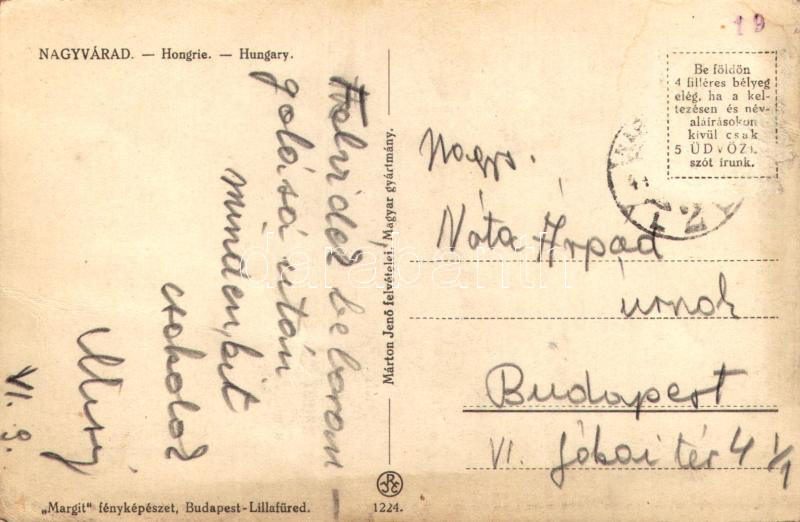 19
NAGYVÁRAD. — Hongrie. — Hungary.
Be földön
4 filléres bélyeg
elég, ha a kel-
tezésen és név-
aláírásokon
kívül csak
5 ÜDVÖZL
szót írunk.
Felvidék bebaran-
golása után
mindenkit
csokolok
VI. 9.
Márton Jenő felvételei. Magyar gyártmány.
Nagys.
Náta Árpád
úrnak
Budapest
VI. Jókai tér 4 1/1
darabanth
"Margit" fényképészet, Budapest-Lillafüred.
1224.